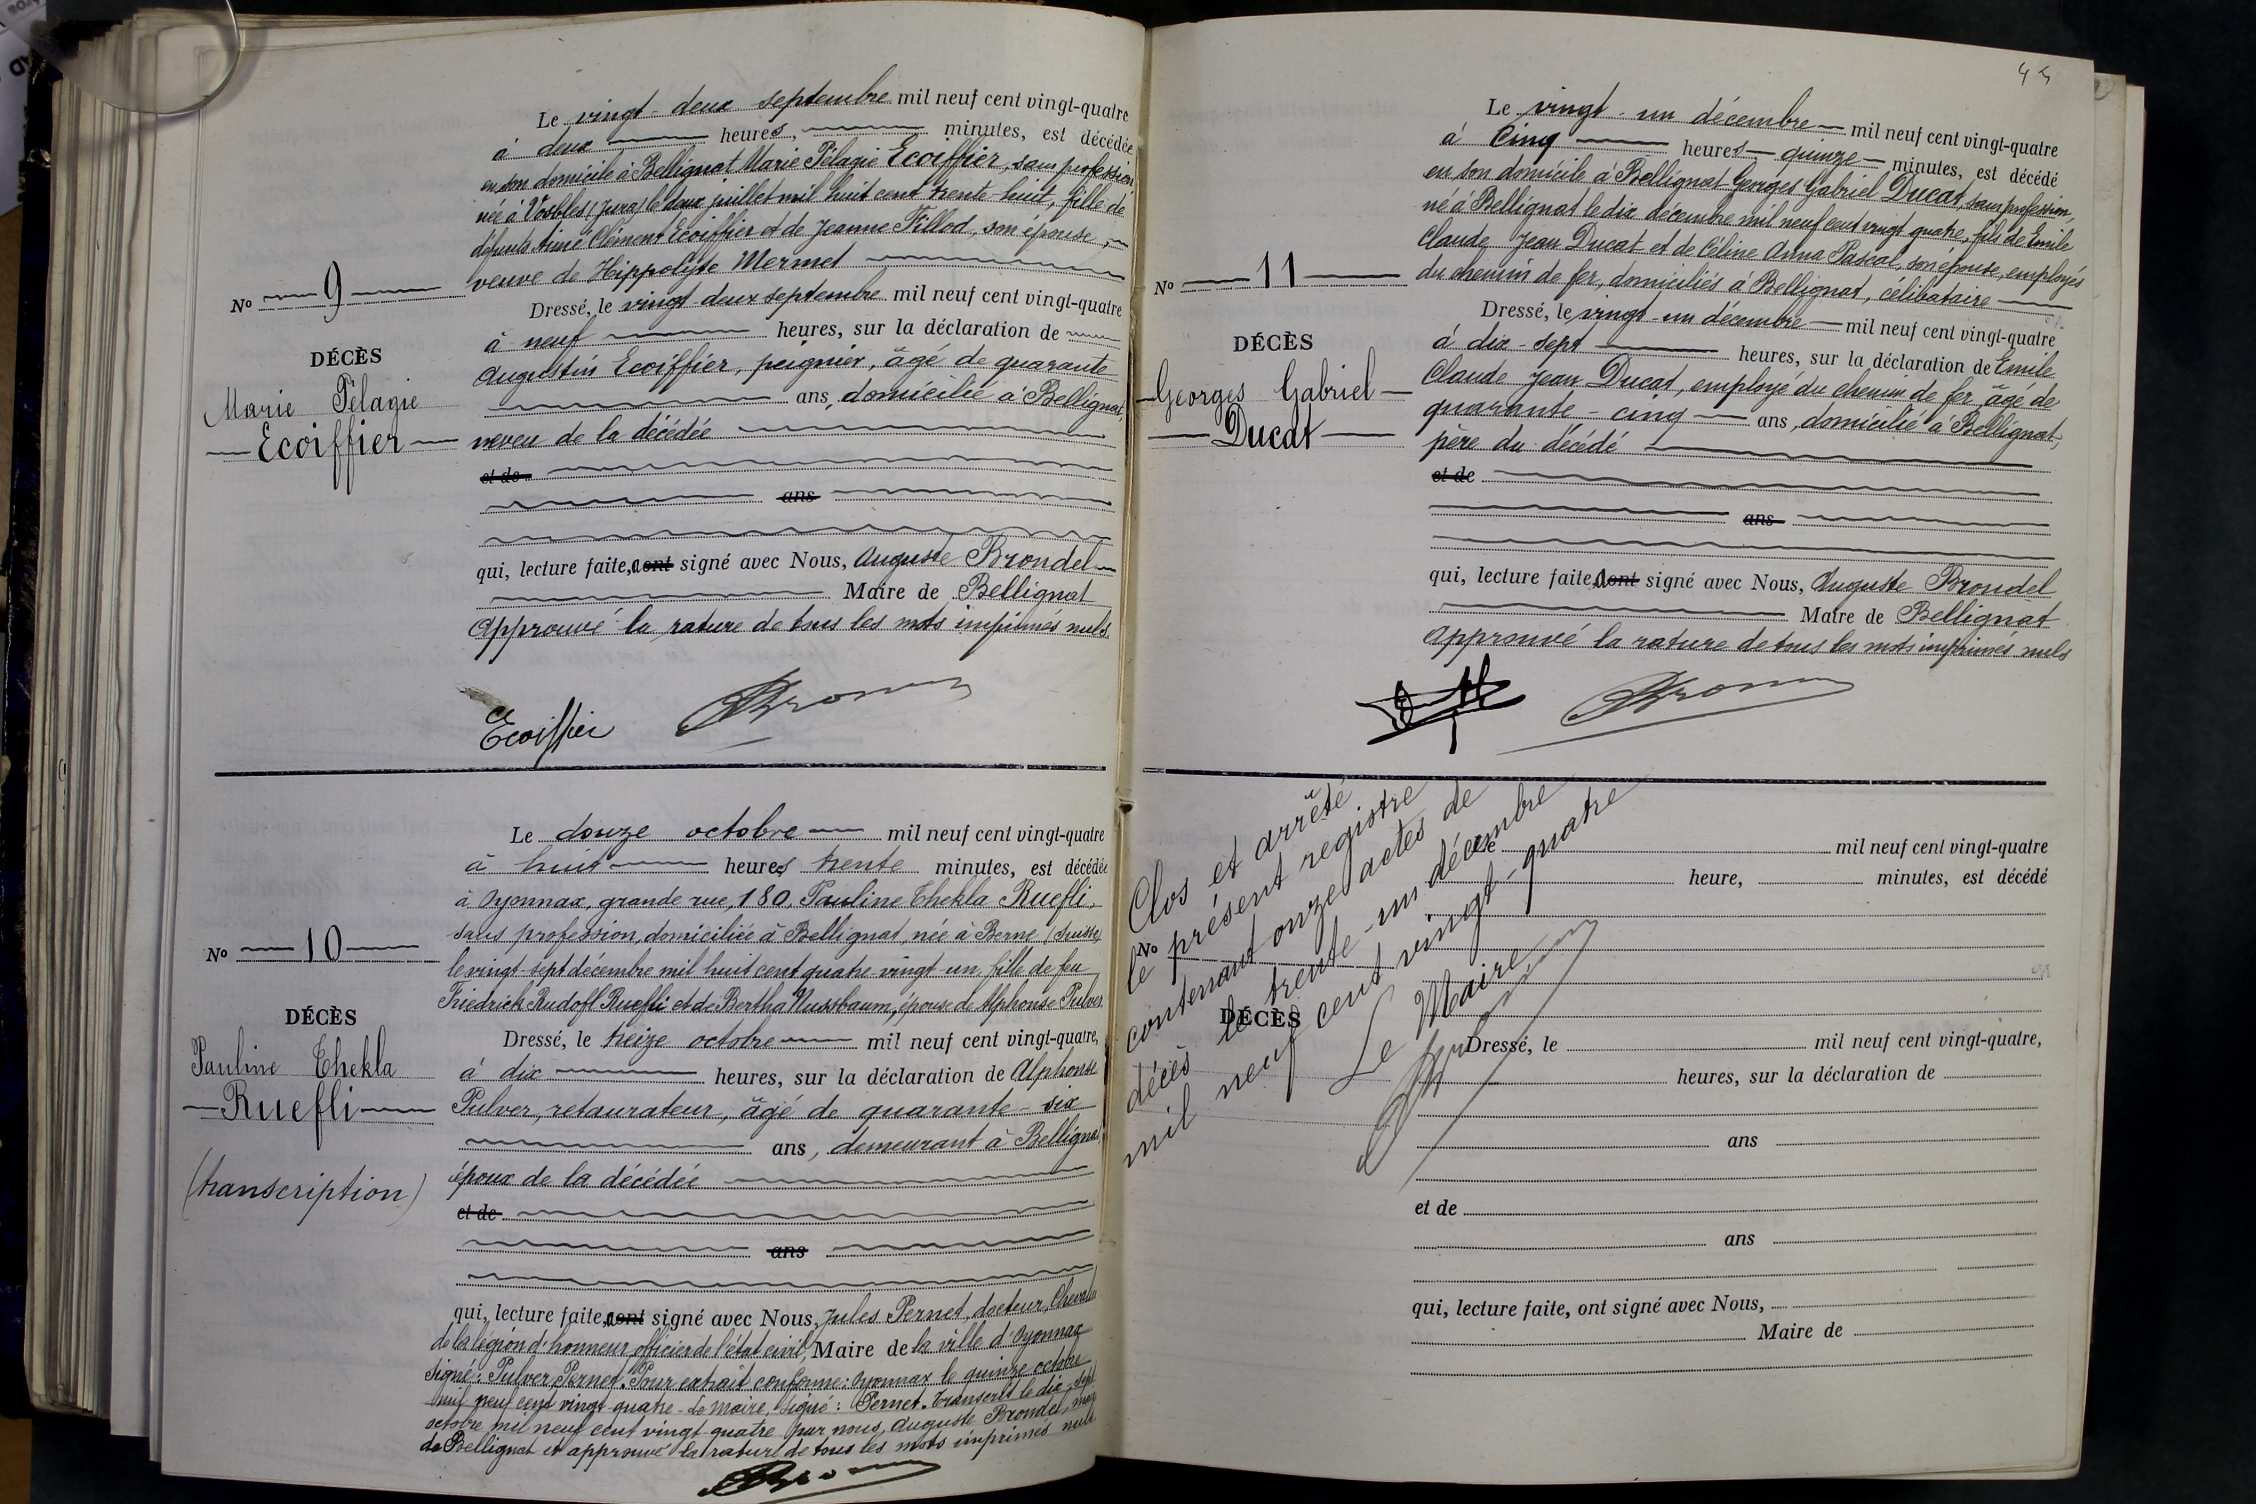 Le vingt-deux septembre mil neuf cent vingt-quatre
à deux heures, minutes, est décédée
en son domicile à Bellignat Marie Pélagie Ecoiffier, sans profession
née à Vosbles (Jura) le deux juillet mil huit cent trente-huit, fille de
défunts Aimé Clément Ecoiffier et de Jeanne Fillod, son épouse,
veuve de Hippolyte Mermet
No 9
Dressé, le vingt-deux septembre mil neuf cent vingt-quatre
à neuf heures, sur la déclaration de
DÉCÈS
Marie Pélagie
Ecoiffier
Augustin Ecoiffier, peignier, âgé de quarante
ans, domicilié à Bellignat,
neveu de la décédée
et de
ans
qui, lecture faite, a ont signé avec Nous, Auguste Brondel
Maire de Bellignat
Approuvé la rature de tous les mots imprimés nuls
Ecoiffier
Le douze octobre mil neuf cent vingt-quatre
à huit heures trente minutes, est décédée
à Oyonnax, grande rue, 180, Pauline Thekla Ruefli,
sans profession, domiciliée à Bellignat, née à Berne (Suisse)
le vingt-sept décembre mil huit cent quatre-vingt-un, fille de feu
Friedrich Rudolf Ruefli et de Bertha Nussbaum, épouse de Alphonse Pulver
No 10
DÉCÈS
Pauline Thekla
Ruefli
(transcription)
Dressé, le treize octobre mil neuf cent vingt-quatre,
à dix heures, sur la déclaration de Alphonse
Pulver, retaurateur, âgé de quarante-six
ans, demeurant à Bellignat
époux de la décédée
et de
ans
qui, lecture faite, a ont signé avec Nous, Jules Pernet, docteur, Chevalier
de la légion d'honneur, officier de l'état civil, Maire de la ville d'Oyonnax
Signé: Pulver, Pernet. Pour extrait conforme: Oyonnax le quinze octobre
mil neuf cent vingt quatre - Le Maire, Signé: Pernet. Transcrit le dix-sept
octobre mil neuf cent vingt quatre par nous, Auguste Brondel, maire
de Bellignat et approuvé la rature de tous les mots imprimés nuls
Le vingt-un décembre mil neuf cent vingt-quatre
à cinq heures quinze minutes, est décédé
en son domicile à Bellignat Georges Gabriel Ducat, sans profession,
né à Bellignat le dix décembre mil neuf cent vingt quatre, fils de Emile
Claude Jean Ducat et de Céline Anna Pascal, son épouse, employés
du chemin de fer, domiciliés à Bellignat, célibataire
No 11
DÉCÈS
Georges Gabriel
Ducat
Dressé, le vingt-un décembre mil neuf cent vingt-quatre
à dix-sept heures, sur la déclaration de Emile
Claude Jean Ducat, employé du chemin de fer âgé de
quarante-cinq ans, domicilié à Bellignat,
père du décédé
et de
ans
qui, lecture faite, a ont signé avec Nous, Auguste Brondel
Maire de Bellignat
Approuvé la rature de tous les mots imprimés nuls
Clos et arrêté
le présent registre
contenant onze actes de
décès le trente-un décembre
mil neuf cent vingt-quatre
Le Maire
Le mil neuf cent vingt-quatre
heure, minutes, est décédé
No
DÉCÈS
Dressé, le mil neuf cent vingt-quatre,
heures, sur la déclaration de
ans
et de
ans
qui, lecture faite, ont signé avec Nous,
Maire de